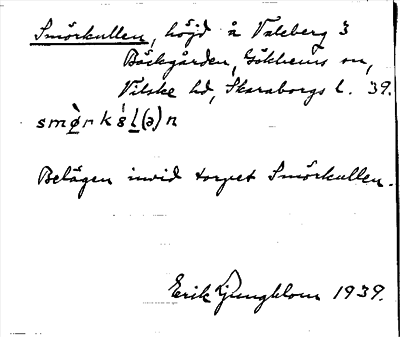 Smörkullen, höjd å Valeberg 3
Bäckgården, Gökhems sn,
Vilske hd, Skaraborgs l. 39.
smø̀rkś̵l(ə)n
Belägen invid torpet Smörkullen.
Erik Ljungblom 1939.